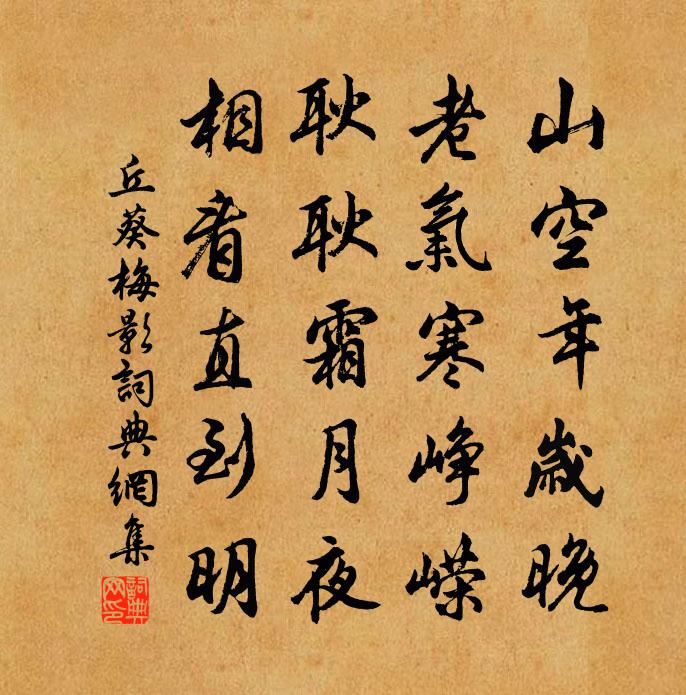 山空年歲晚
老氣寒崢嶸
耿耿霜月夜
相看直到明
丘葵梅影詞典網集
詞典網印